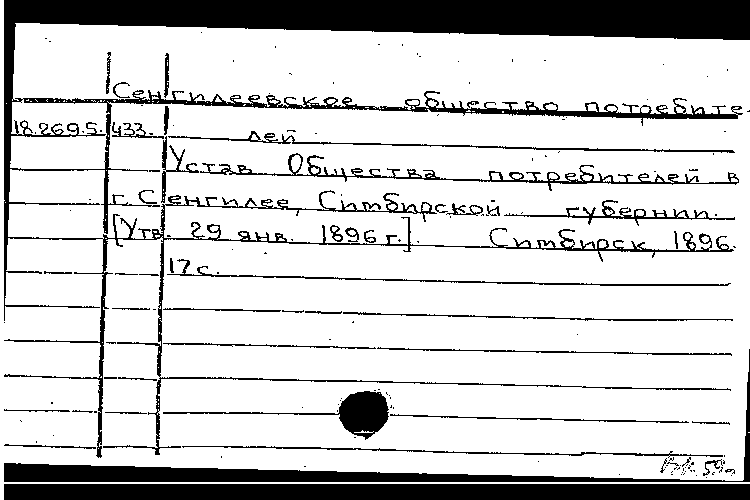 Сенгилеевское общество потребите-
18.269.5.433. лей
Устав Общества потребителей в
г. Сенгилее, Симбирской губернии.
[Утв. 29 янв. 1896 г.]. Симбирск, 1896.
17 с.